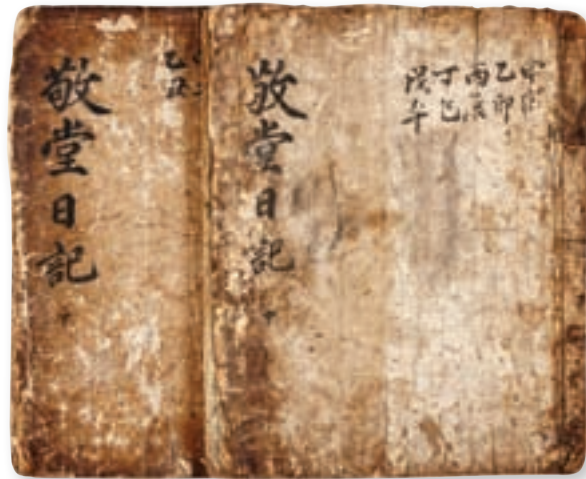 甲寅
乙卯
丙辰
丁巳
戊午
敬堂日記
乙丑
敬堂日記